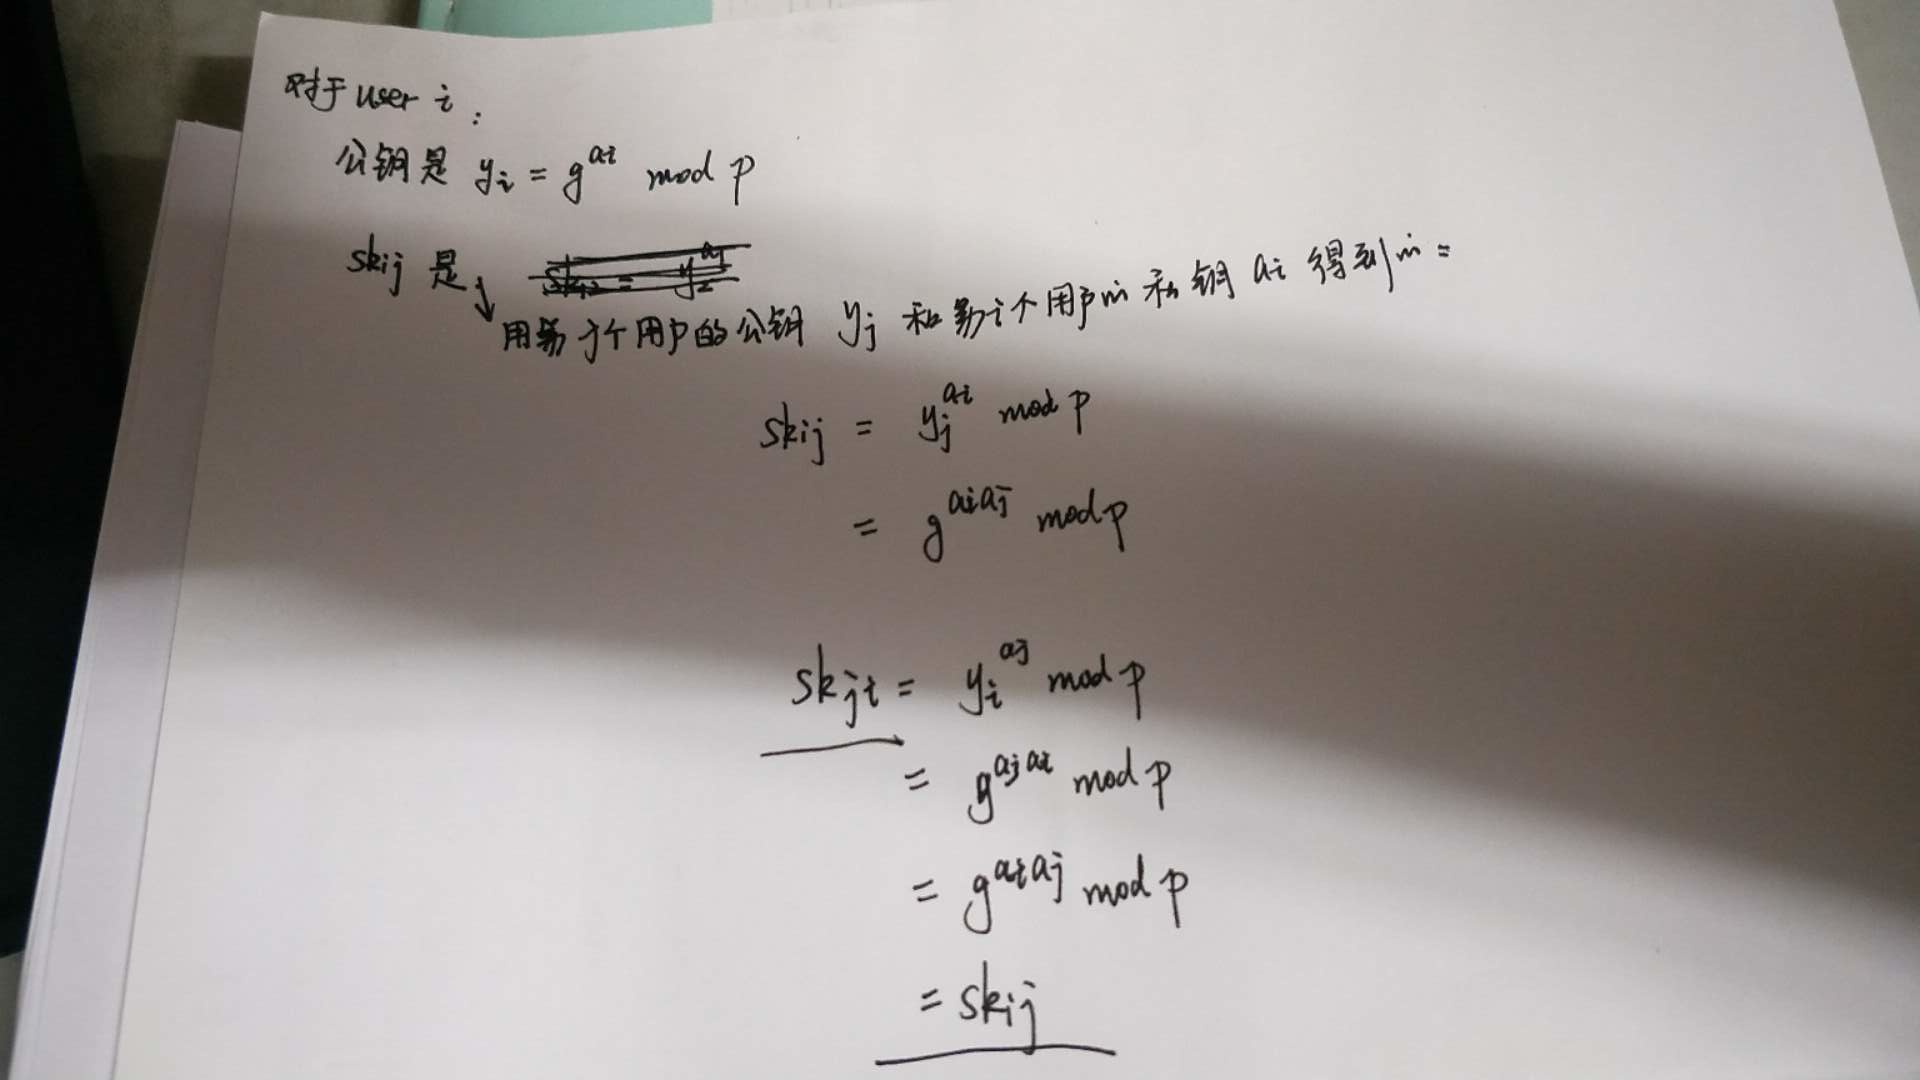 对于user i:
公钥是 yi = g^ai mod p
skij 是
用第j个用户的公钥 yj 和第i个用户的私钥 ai 得到的 =
skij = yj^ai mod p
= g^aiaj mod p
skji = yi^aj mod p
= g^ajai mod p
= g^aiaj mod p
= skij